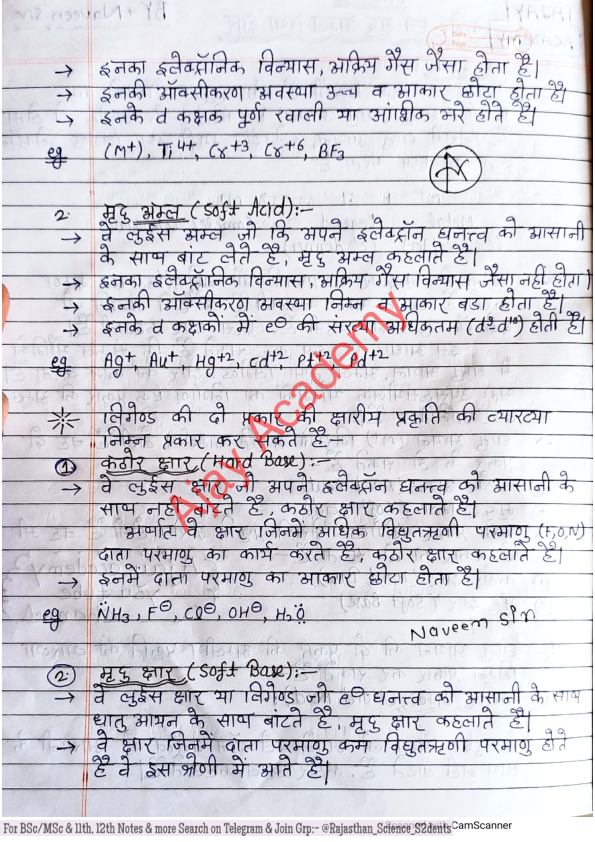 → इनका इलेक्ट्रॉनिक विन्यास, अक्रिय गैस जैसा होता है।
→ इनकी ऑक्सीकरण अवस्था उच्च व आकार छोटा होता है।
→ इनके d कक्षक पूर्ण खाली या आंशिक भरे होते है।
eg (M+), Ti4+, Cr+3, Cr+6, BF3
2. मृदु अम्ल (Soft Acid):-
→ वे लुईस अम्ल जो कि अपने इलेक्ट्रॉन घनत्त्व को आसानी
के साथ बांट लेते है, मृदु अम्ल कहलाते है।
→ इनका इलेक्ट्रॉनिक विन्यास, अक्रिय गैस विन्यास जैसा नहीं होता।
→ इनकी ऑक्सीकरण अवस्था निम्न व आकार बडा होता है।
→ इनके d कक्षकों में e⊖ की संख्या अधिकतम (d9-d10) होती है।
eg Ag+, Au+, Hg+2, Cd+2, Pt+2, Pd+2
लिगेण्ड की दो प्रकार की क्षारीय प्रकृति की व्याख्या
निम्न प्रकार कर सकते है-
1. कठोर क्षार (Hard Base):-
→ वे लुईस क्षार जो अपने इलेक्ट्रॉन घनत्त्व को आसानी के
साथ नहीं बांटते है, कठोर क्षार कहलाते है।
अर्थात वे क्षार जिनमें अधिक विद्युतऋणी परमाणु (F,O,N)
दाता परमाणु का कार्य करते है, कठोर क्षार कहलाते है।
→ इनमें दाता परमाणु का आकार छोटा होता है।
eg N̈H3, F⊖, Cl⊖, OH⊖, H2Ö
Naveen sir
2. मृदु क्षार (Soft Base):-
→ वे लुईस क्षार या लिगेण्ड जो e⊖ घनत्त्व को आसानी के साथ
धातु आयन के साथ बांटते है, मृदु क्षार कहलाते है।
→ वे क्षार जिनमें दाता परमाणु कम विद्युतऋणी परमाणु होते
है वे इस श्रेणी में आते है।
Ajay Academy
For BSc/MSc & 11th, 12th Notes & more Search on Telegram & Join Grp:- @Rajasthan_Science_S2dents
CamScanner